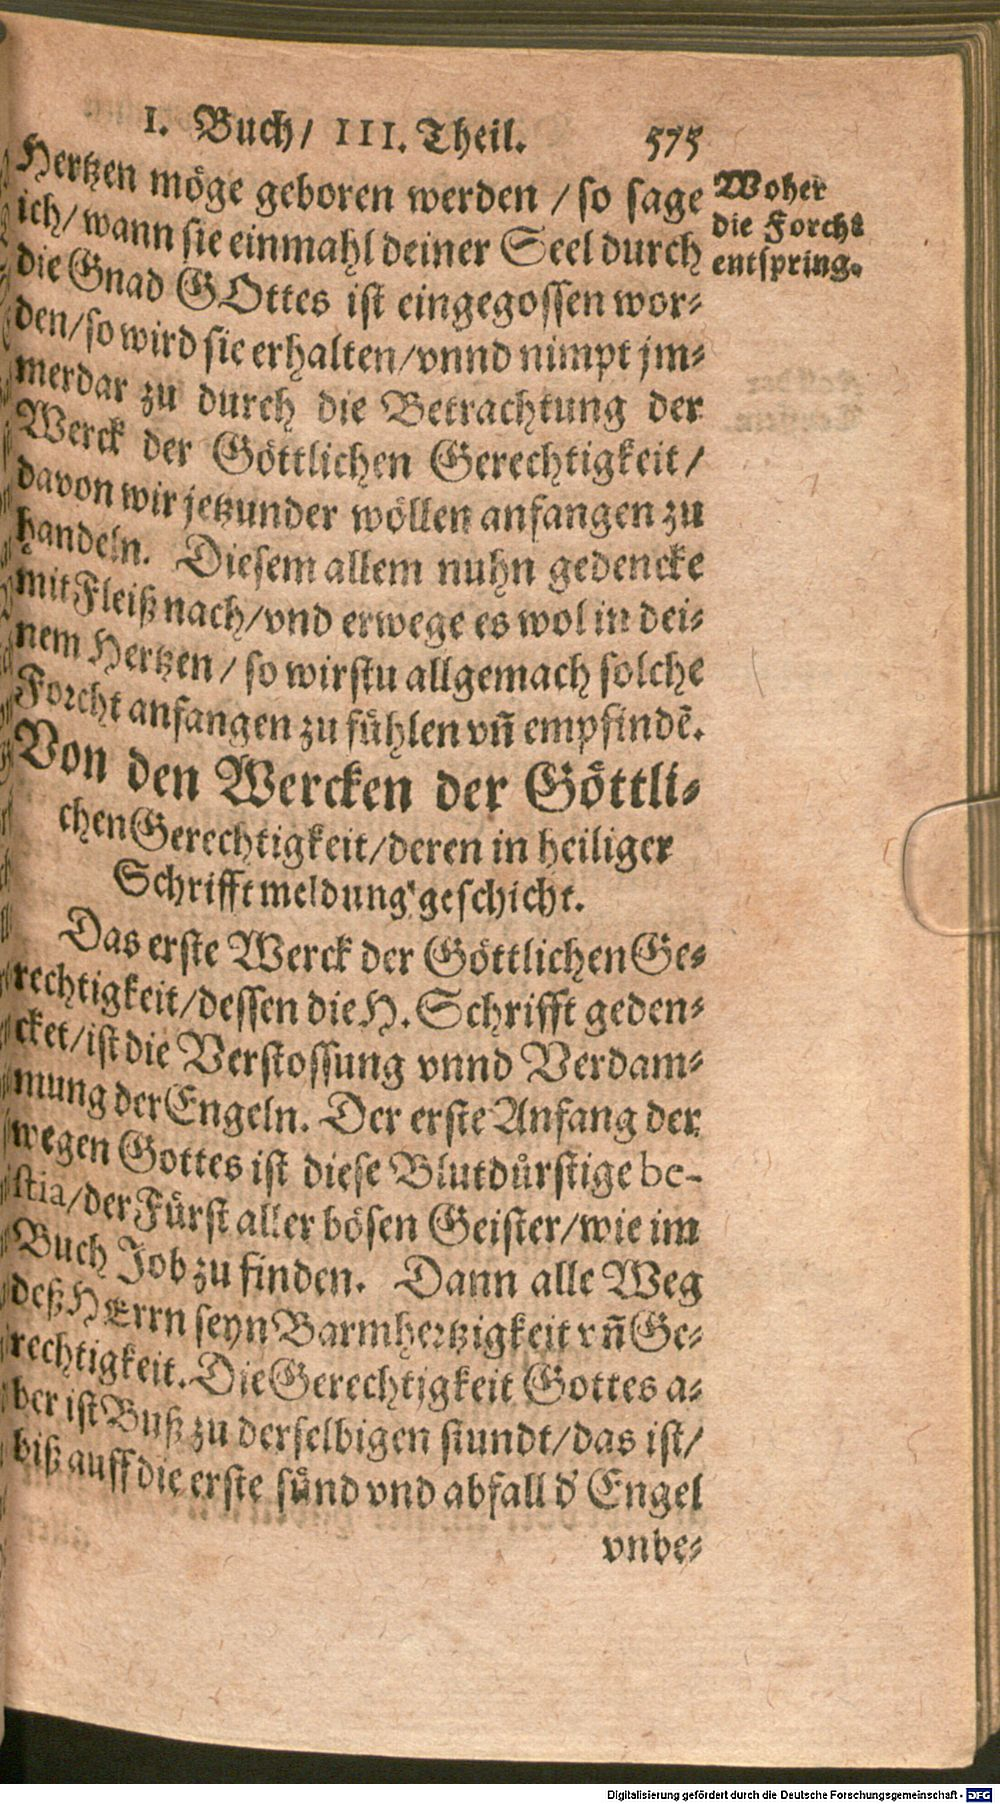 I. Buch/ III. Theil. 575
Hertzen möge geboren werden / so sage
ich/ wann sie einmahl deiner Seel durch
die Gnad GOttes ist eingegossen wor-
den/ so wird sie erhalten/ vnnd nimpt jm-
merdar zu durch die Betrachtung der
Werck der Göttlichen Gerechtigkeit/
davon wir jetzunder wöllen anfangen zu
handeln. Diesem allem nuhn gedencke
mit Fleiß nach/ vnd erwege es wol in dei-
nem Hertzen/ so wirstu allgemach solche
Forcht anfangen zu fühlen vñ empfindẽ.
Woher
die Forcht
entspring.
Von den Wercken der Göttli-
chen Gerechtigkeit/ deren in heiliger
Schrifft meldung geschicht.
Das erste Werck der Göttlichen Ge-
rechtigkeit/ dessen die H. Schrifft geden-
cket/ ist die Verstossung vnnd Verdam-
mung der Engeln. Der erste Anfang der
wegen Gottes ist diese Blutdürstige be-
stia/ der Fürst aller bösen Geister/ wie im
Buch Job zu finden. Dann alle Weg
deß HErrn seyn Barmhertzigkeit vñ Ge-
rechtigkeit. Die Gerechtjgkeit Gottes a-
ber ist Buß zu derselbigen stundt/ das ist/
biß auff die erste sünd vnd abfall d' Engel
vnbe-
Digitalisierung gefördert durch die Deutsche Forschungsgemeinschaft - DFG